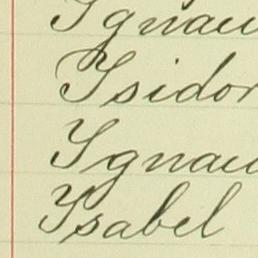 Ignac
Isidor
Ignac
Isabel